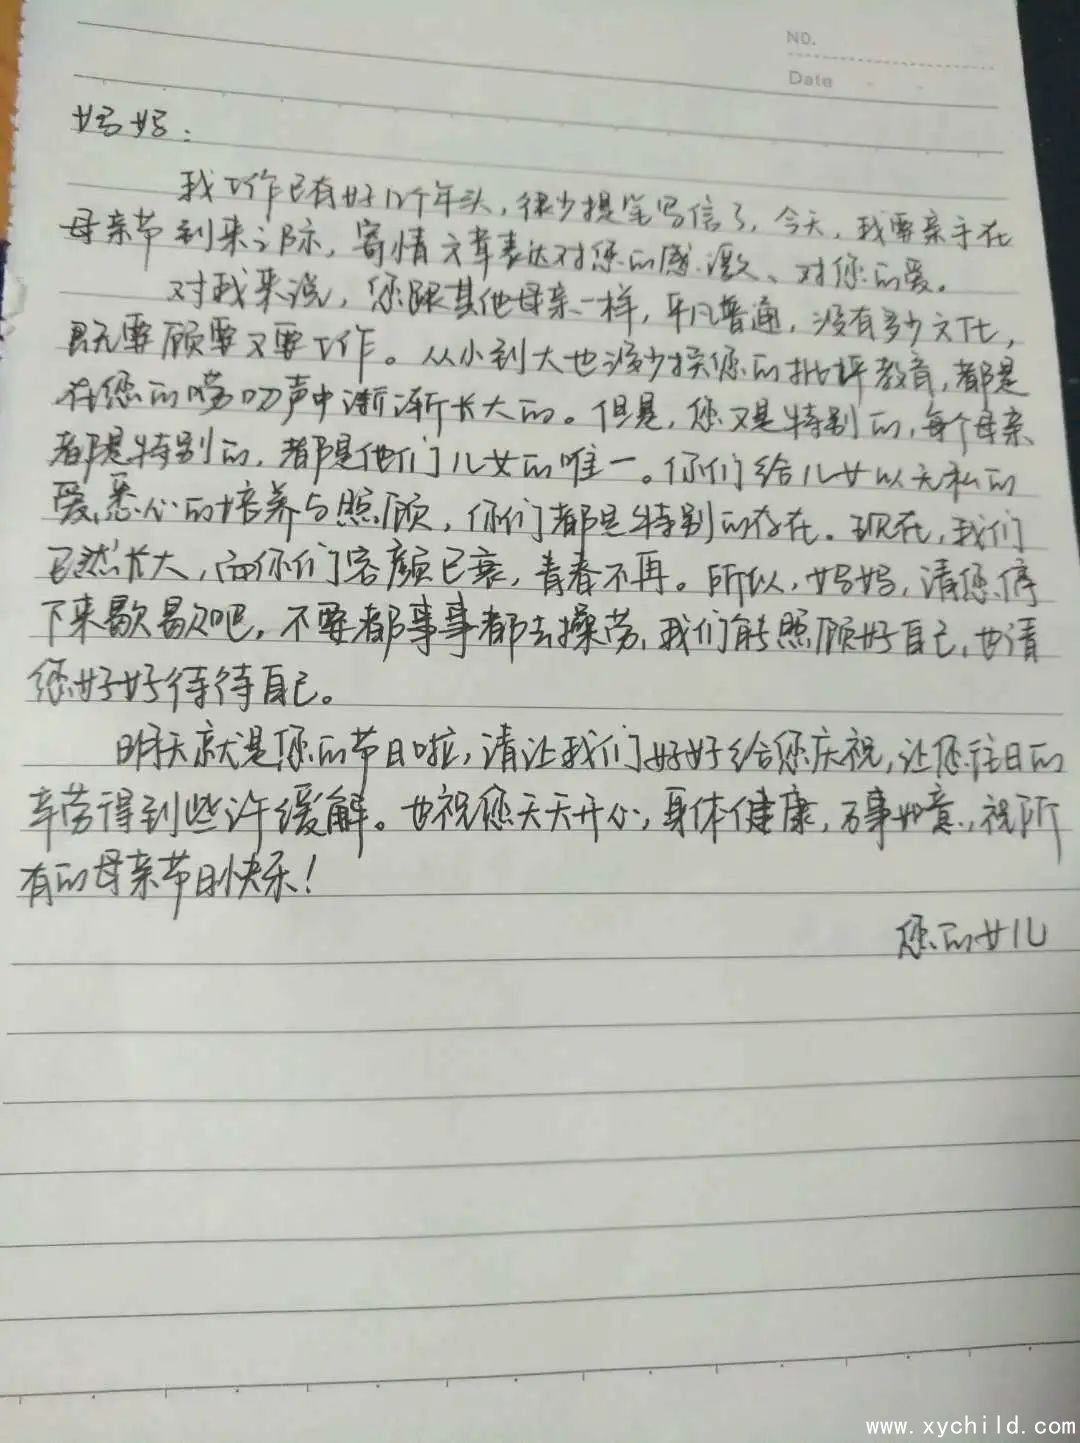 NO.
Date
妈妈：
我工作已有好几个年头，很少提笔写信了，今天，我要亲手在
母亲节到来之际，寄情文章表达对您的感激、对您的爱。
对我来说，您跟其他母亲一样，平凡普通，没有多少文化，
既要顾要又要工作。从小到大也没少挨您的批评教育，都是
在您的唠叨声中渐渐长大的。但是，您又是特别的，每个母亲
都是特别的，都是他们儿女的唯一。你们给儿女以无私的
爱、悉心的培养与照顾，你们都是特别的存在。现在，我们
已然长大，而你们容颜已衰，青春不再。所以，妈妈，请您停
下来歇歇吧，不要都事事都去操劳，我们能照顾好自己，也请
您好好待待自己。
明天就是您的节日啦，请让我们好好给您庆祝，让您往日的
辛劳得到些许缓解。也祝您天天开心，身体健康，万事如意，祝所
有的母亲节日快乐！
您的女儿
www.xychild.com